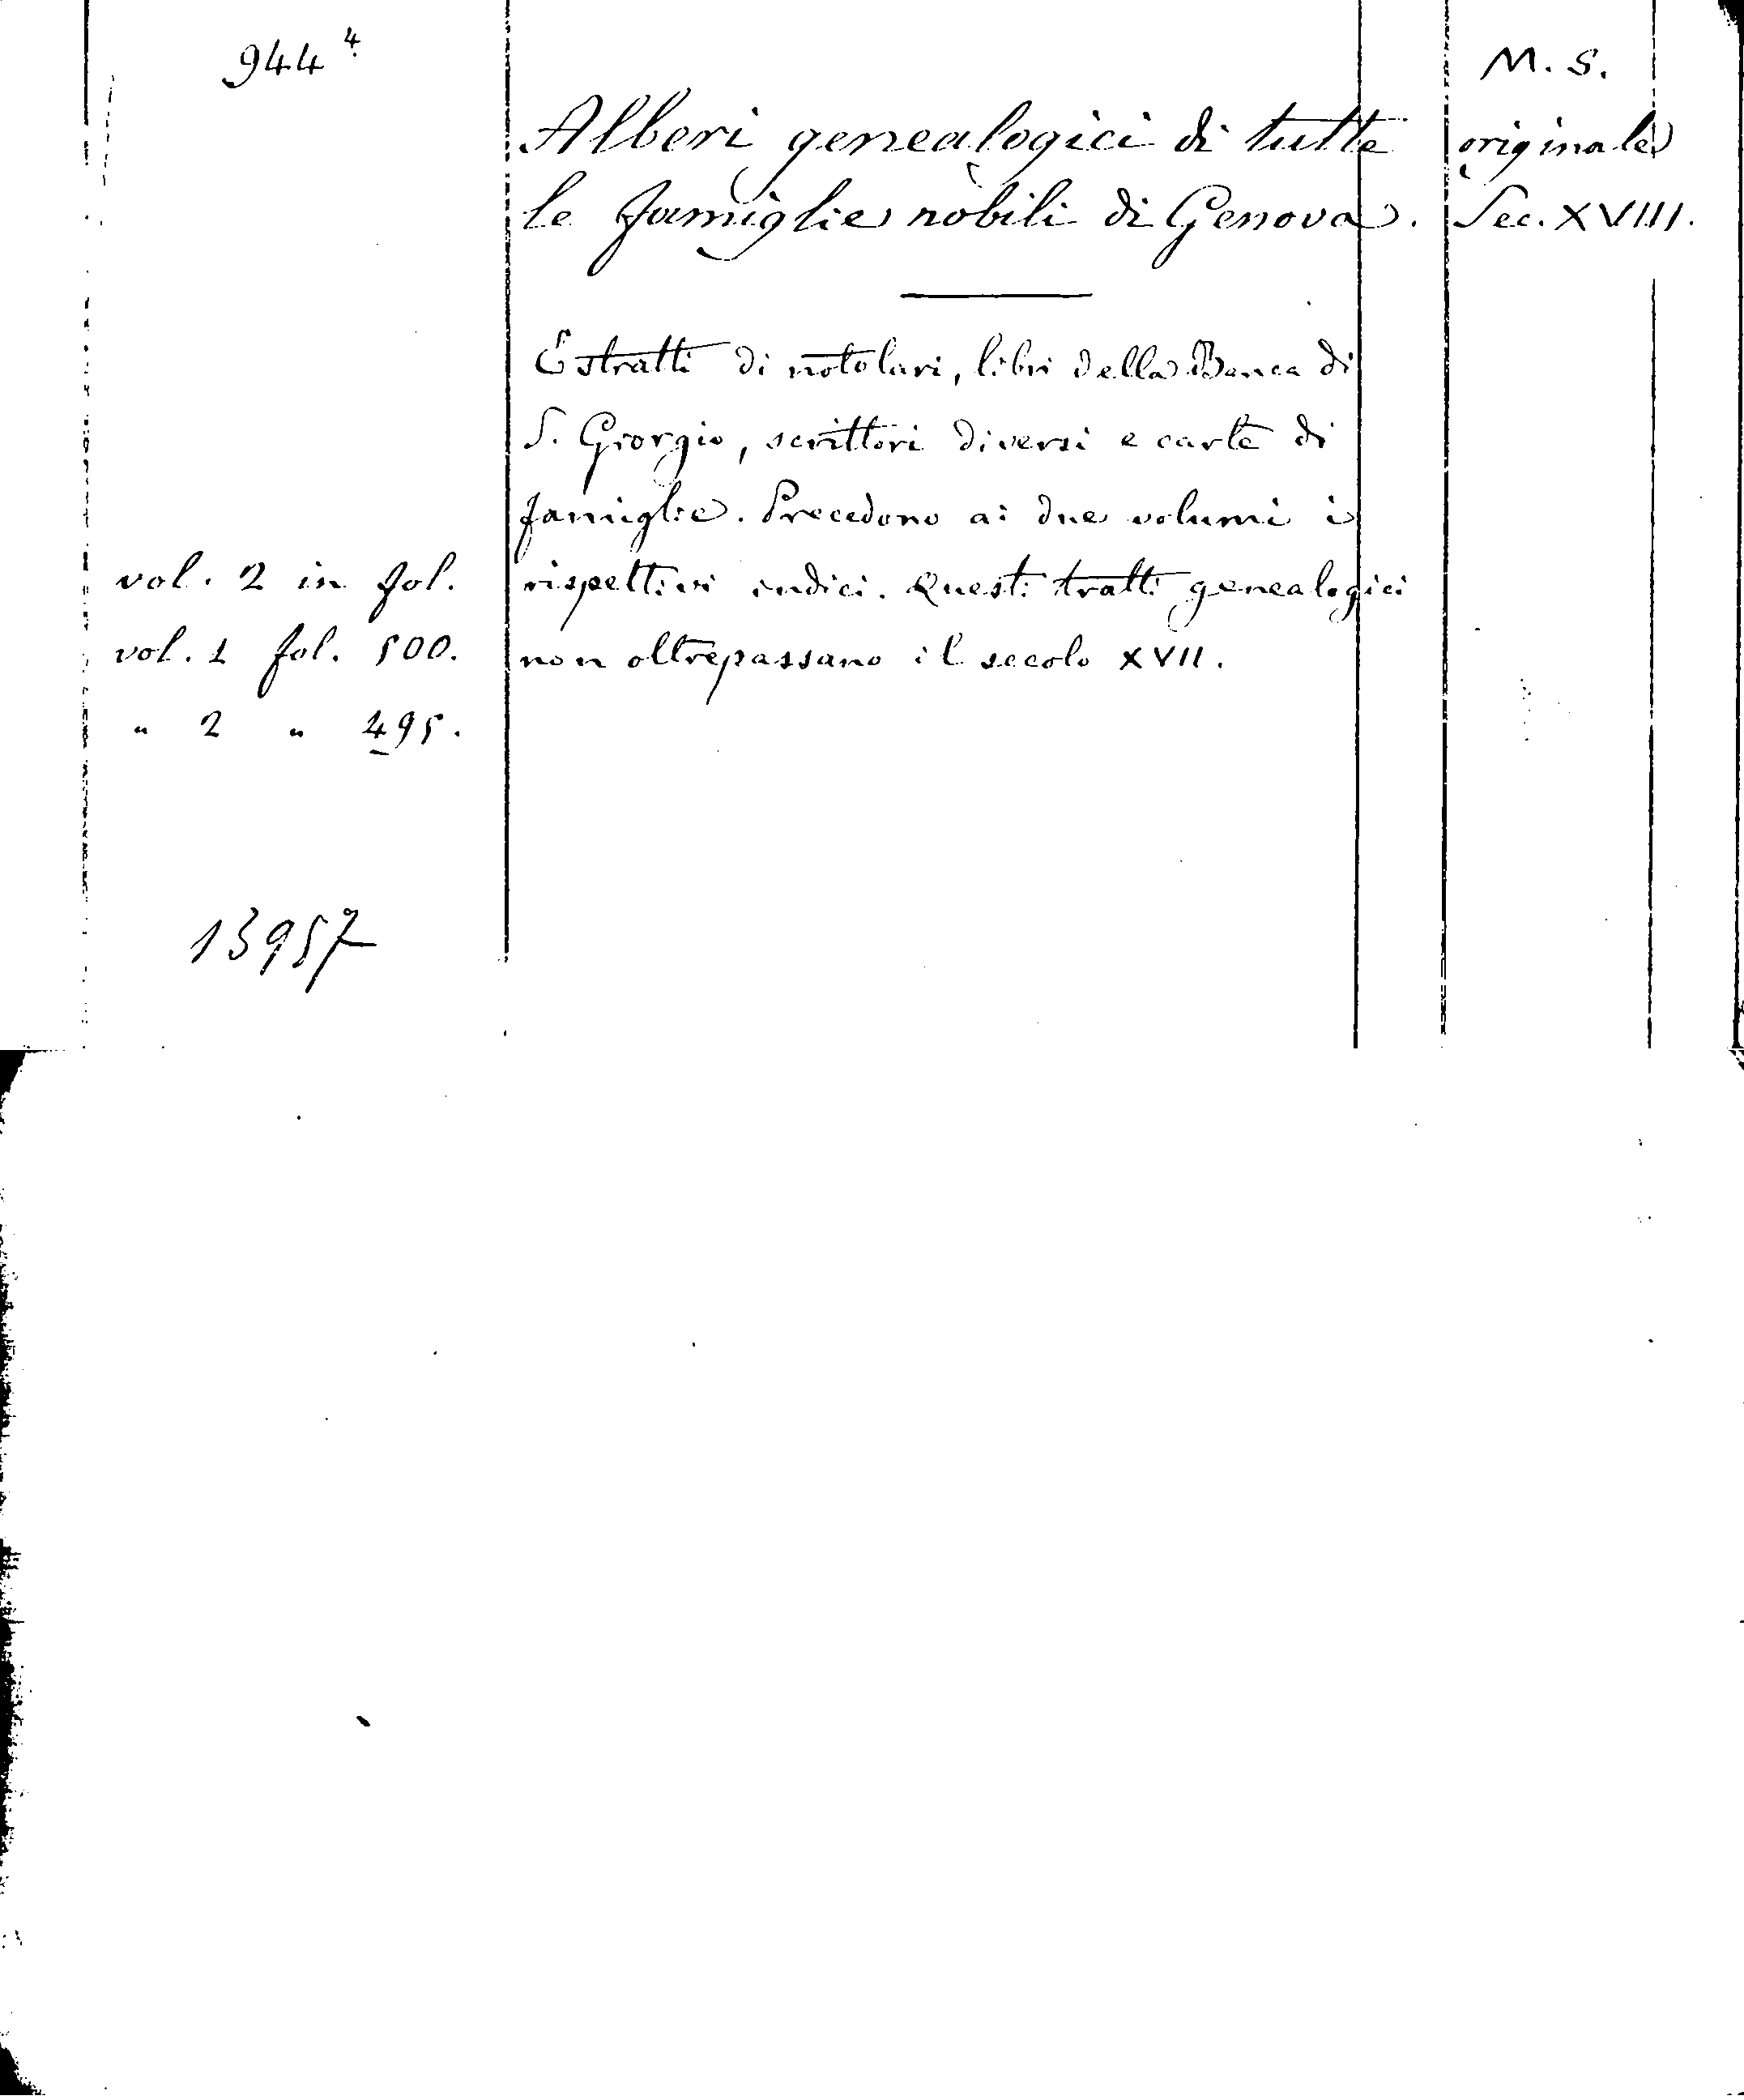 944 4.
M. S.
Alberi genealogici di tutte
originale
le famiglie nobili di Genova.
Sec. XVIII.
Estratti di notolari, libri della Banca di
S. Giorgio, scrittori diversi e carte di
famiglie. Precedono ai due volumi i
vol. 2 in fol.
rispettivi indici. Questi tratti genealogici
vol. 1 fol. 500.
non oltrepassano il secolo XVII.
" 2 " 495.
13957